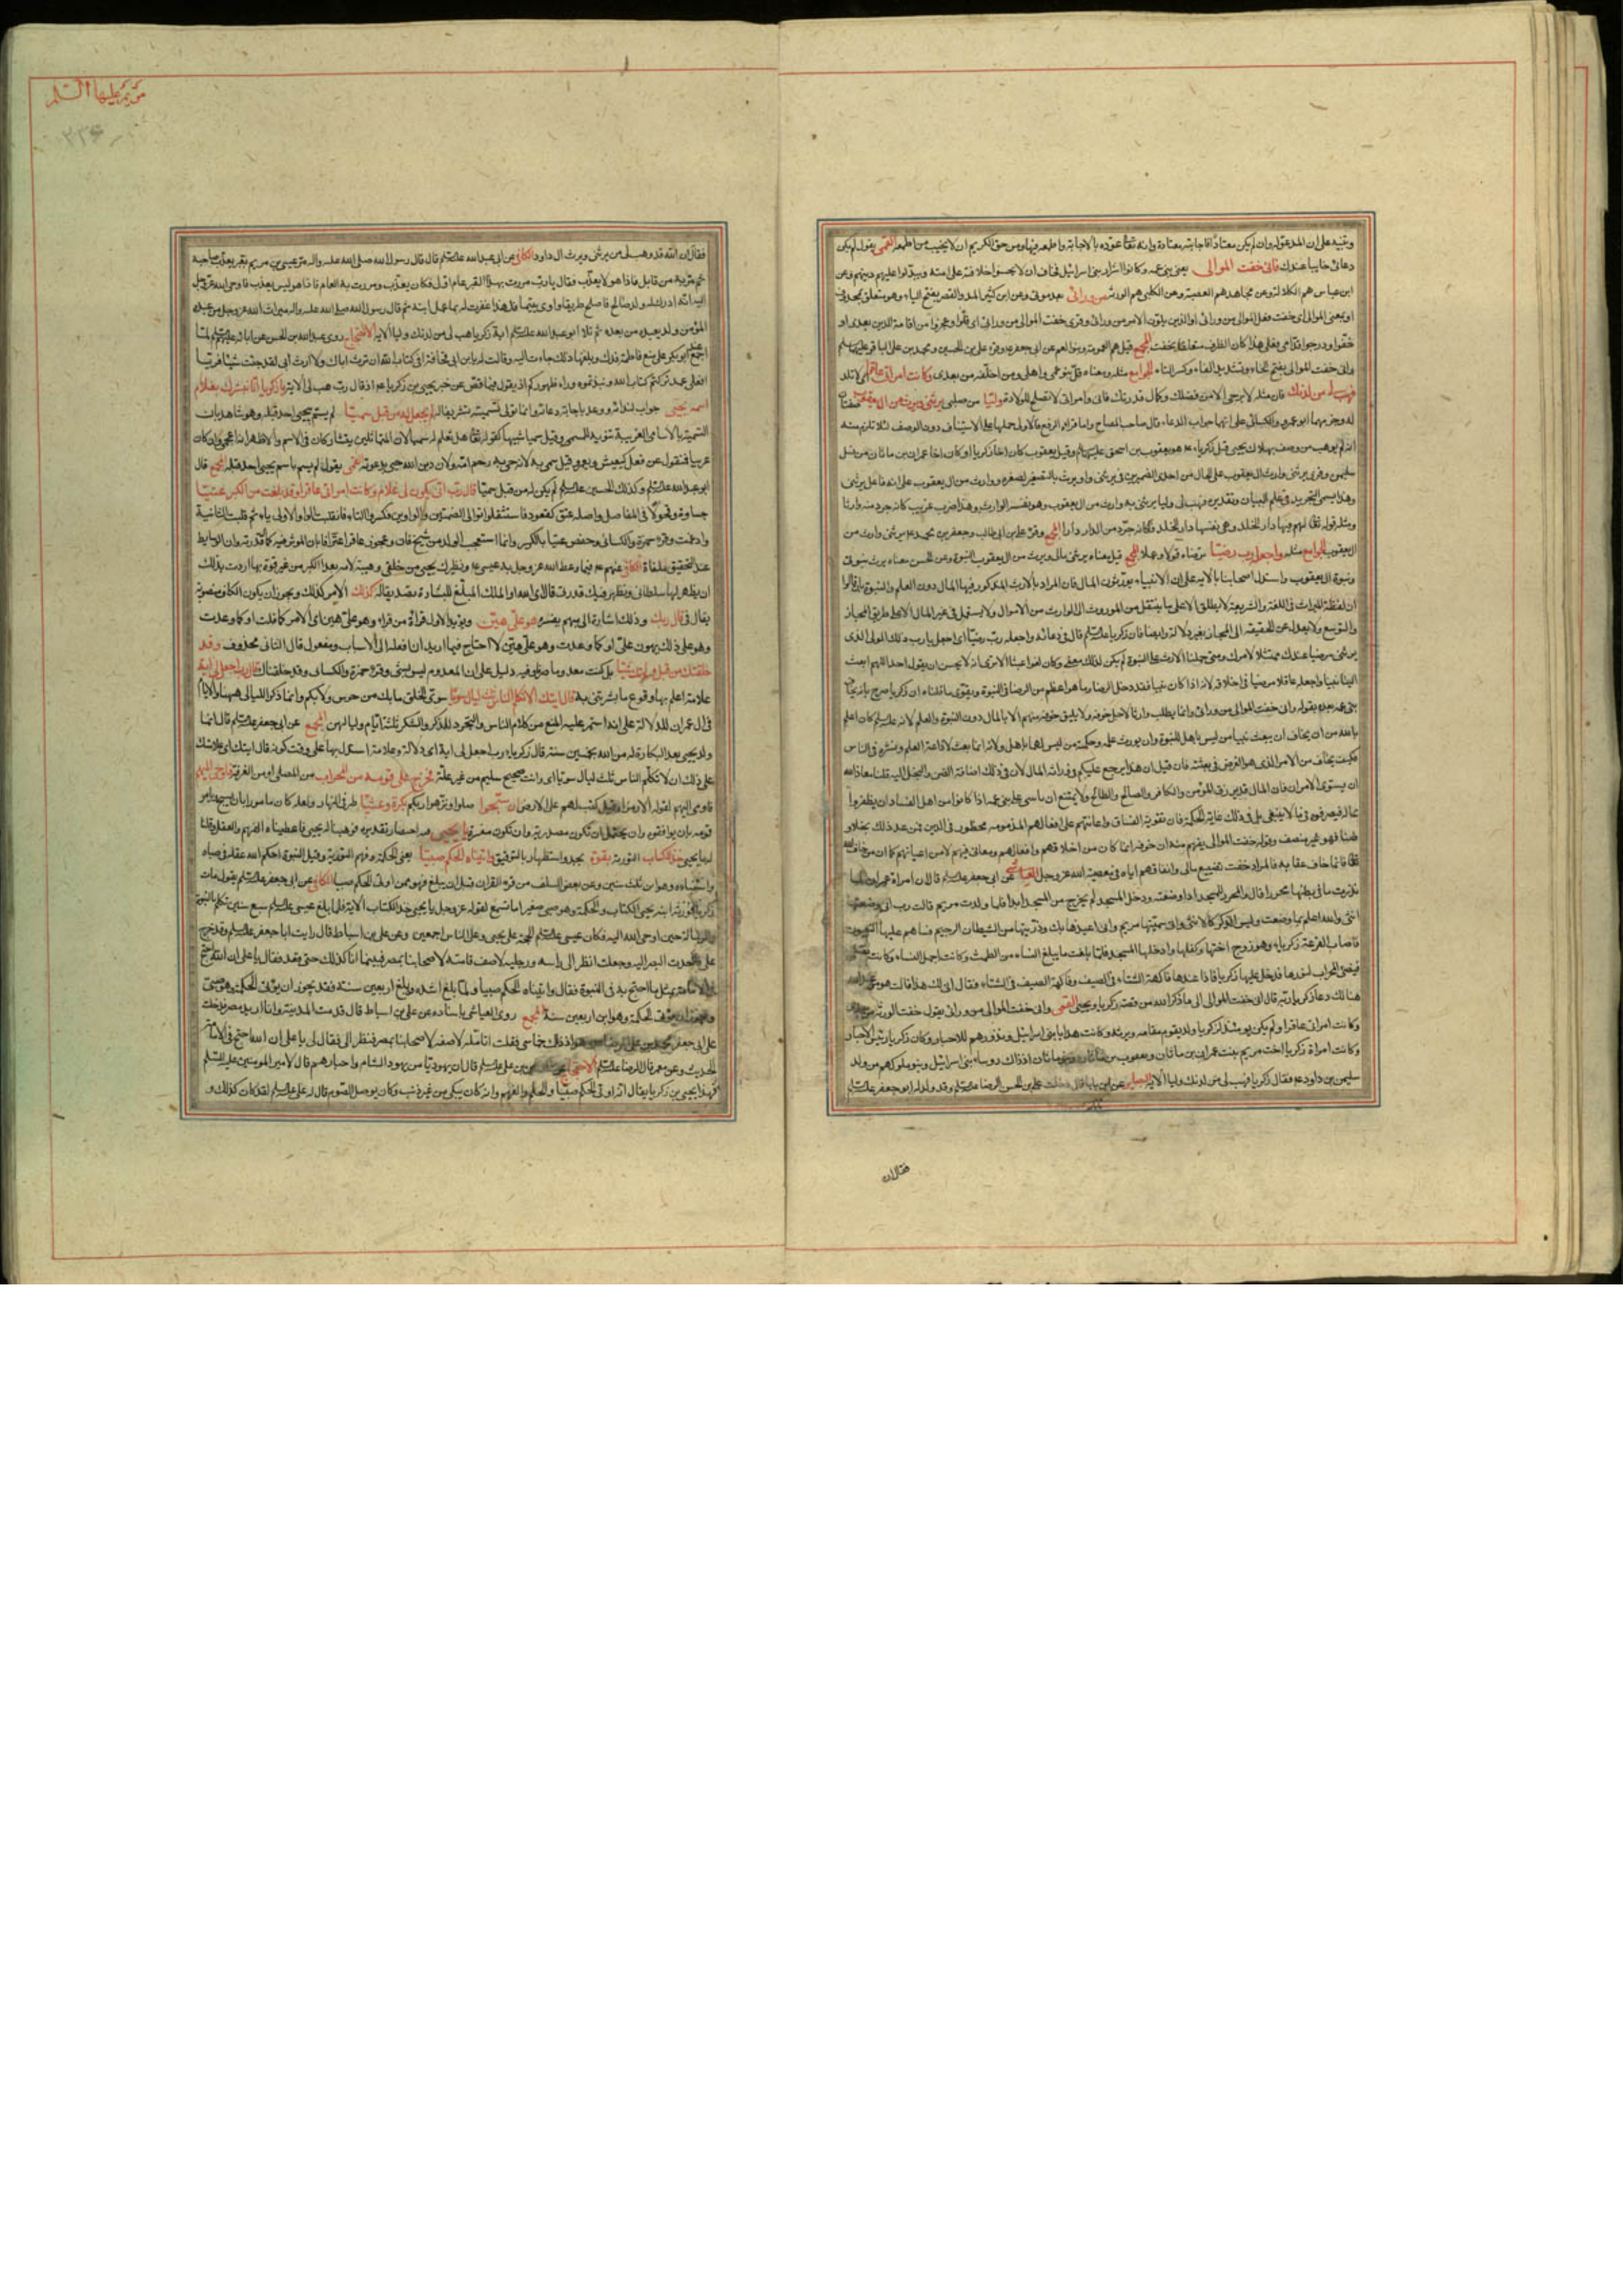 وتنبيه على ان المدعو له وان لم يكن معتادًا فاجابته معتادة وانه تعالى عوّده بالاجابة واطمعه فيها ومن حق الكريم ان لا يخيب من اطمعه القمي يقول لم يكن
دعائى خايبا عندك وانى خفت الموالى يعنى بنى عمه وكانوا اشرار بنى اسرائيل فخاف ان لا يحسنوا خلافته على امته ويبدّلوا عليهم دينهم وعن
ابن عباس هم الكلالة وعن مجاهد هم العصبة وعن الكلبى هم الورثة من ورائى بعد موتى وعن ابن كثير المد والقصر بفتح الياء وهو متعلق بمحذوف
او بمعنى الموالى اى خفت فعل الموالى من ورائى او الذين يلون الامر من ورائى وقرى خفت الموالى من ورائى اى قلّوا وعجزوا من اقامة الدين بعدى او
خفّوا ودرجوا قدّامى فعلى هذا كان الظرف متعلقا بخفت المجمع قيل هم العمومة وبنو العم عن ابى جعفر وقرء على بن الحسين ومحمد بن على الباقر عليهما السلم
وانى خفت الموالى بفتح الخاء وتشديد الفاء وكسر التاء الجوامع مثله ومعناه قلّ بنو عمى واهلى ومن اخلّفه من بعدى وكانت امراتى عاقرا لا تلد
فهب لى من لدنك فان مثله لا يرجى الا من فضلك وكمال قدرتك فانى وامراتى لا نصلح للولادة وليّا من صلبى يرثنى ويرث من ال يعقوب صفتان
له وجزمهما ابو عمرو والكسائى على انهما جواب الدعاء قال صاحب المصباح واما قراءة الرفع فالاولى حملها على الاستيناف دون الوصف لئلا يلزم منه
انه لم يوهب من وصف بهلاك يحيى قبل زكرياء هو يعقوب بن اسحق عليهما السلم وقيل يعقوب كان اخا زكريا او كان اخا عمران بن ماثان من نسل
سليمن وقرى يرثنى وارث ال يعقوب على الحال من احدى الضميرين فى يرثنى واويرث بالتصغير لصغره ووارث من ال يعقوب على انه فاعل يرثنى
وهذا يسمى التجريد فى علم البيان وتقديره فهب لى وليا يرثنى به وارث من ال يعقوب وهو نفسه الوارث وهذا ضرب غريب كانه جرد منه وارثا
ومثله قوله تعالى لهم فيها دار الخلد وهى بنفسها دار الخلد فكانه جرّد من الدار دارا المجمع وقرء على بن ابى طالب وجعفر بن محمد يرثنى وارث من
ال يعقوب الجوامع مثله واجعله رب رضيّا ترضاه قولا وعملا المجمع قيل معناه يرثنى مالى ويرث من ال يعقوب النبوة وعن الحسن معناه يرث نبوتى
ونبوة ال يعقوب واستدل اصحابنا بالاية على ان الانبياء يورثون المال فان المراد بالارث المذكور فيها المال دون العلم والنبوة بان قالوا
ان لفظة الميراث فى اللغة والشريعة لا يطلق الا على ما ينتقل من الموروث الى الوارث من الاموال ولا يستعمل فى غير المال الا على طريق المجاز
والتوسع ولا يعدل عن الحقيقة الى المجاز بغير دلالة وايضا فان زكريا عليه السلم قال فى دعائه واجعله رب رضيّا اى اجعل يا رب ذلك المولى الذى
يرثنى مرضيا عندك ممتثلا لامرك ومتى حملنا الارث على النبوة لم يكن لذلك معنى وكان لغوا عبثا الا ترى انه لا يحسن ان يقول احد اللهم ابعث
الينا نبيا واجعله عاقلا مرضيا فى اخلاقه لانه اذا كان نبيا فقد دخل الرضا وما هو اعظم من الرضا فى النبوة ويقوى ما قلناه ان زكريا صرح بانه يخاف
بنى عمه بعده بقوله وانى خفت الموالى من ورائى وانما يطلب وارثا لاجل خوفه ولا يليق خوفه منهم الا بالمال دون النبوة والعلم لانه عليه السلم كان اعلم
بالله من ان يخاف ان يبعث نبيا من ليس باهل للنبوة وان يورث علمه وحكمته من ليس لهما باهل ولانه انما بعث لاذاعة العلم ونشره فى الناس
فكيف يخاف من الامر الذى هو الغرض فى بعثته فان قيل ان هذا يرجع عليكم فى وراثة المال لان فى ذلك اضافة الضن والبخل اليه قلنا معاذ الله
ان يستوى الامران فان المال قد يرزق المؤمن والكافر والصالح والطالح ولا يمتنع ان ياسى على بنى عمه اذا كانوا من اهل الفساد ان يظفروا
بماله فيصرفوه فيما لا ينبغى بل فى ذلك غاية الحكمة فان تقوية الفساق واعانتهم على افعالهم المذمومه محظور فى الدين فمن عد ذلك بخلا و
ضنا فهو غير منصف وقوله خفت الموالى يفهم منه ان خوفه انما كان من اخلاقهم وافعالهم ومعانى فيهم لا من اعيانهم كما ان من خاف الله
تعالى فانما خاف عقابه فالمراد خفت تضييع مالى وانفاقهم اياه فى معصية الله عز وجل العياشى عن ابى جعفر عليه السلم قال ان امراة عمران لما
نذرت ما فى بطنها محررا قال والمحرر للمسجد اذا وضعته ودخل المسجد لم يخرج من المسجد ابدا فلما ولدت مريم قالت رب انى وضعتها
انثى والله اعلم بما وضعت وليس الذكر كالانثى وانى سميتها مريم وانى اعيذها بك وذريتها من الشيطان الرجيم فساهم عليها النبيون
فاصاب القرعة زكرياء وهو زوج اختها وكفلها وادخلها المسجد فلما بلغت ما يبلغ النساء من الطمث وكانت اجمل النساء وكانت تصلى
فيضئ المحراب لنورها فدخل عليها زكريا فاذا عندها فاكهة الشتاء فى الصيف وفاكهة الصيف فى الشتاء فقال انى لك هذا قالت هو من عند الله
هنالك دعا زكريا ربه قال انى خفت الموالى الى ما ذكر الله من قصة زكريا ويحيى القمى وانى خفت الموالى من ورائى يقول خفت الورثة من بعدى
وكانت امراتى عاقرا ولم يكن يومئذ لزكريا ولد يقوم مقامه ويرثه وكانت هدايا بنى اسرائيل ونذورهم للاحبار وكان زكريا رئيس الاحبار
وكانت امراة زكريا اخت مريم بنت عمران بن ماثان ويعقوب بن ماثان وبنو ماثان اذ ذاك روساء بنى اسرائيل وبنو ملوكهم من ولد
سليمن بن داود فقال زكريا فهب لى من لدنك وليا الاية
فقال ان
مريم عليها السلم
فقال ان الله قد وهب لى من يرثنى ويرث ال داود الكافى عن ابى عبد الله عليه السلم قال قال رسول الله صلى الله عليه واله مر عيسى بن مريم بقبر يعذب صاحبه
ثم مر به من قابل فاذا هو لا يعذب فقال يا رب مررت بهذا القبر عام اول فكان يعذب ومررت به العام فاذا هو ليس يعذب فاوحى الله عز وجل
اليه انه ادرك له ولد صالح فاصلح طريقا واوى يتيما فلهذا غفرت له بما عمل ابنه ثم قال رسول الله صلى الله عليه واله ميراث الله عز وجل من عبده
المؤمن ولد يعبده من بعده ثم تلا ابو عبد الله عليه السلم اية زكريا هب لى من لدنك وليا الاية الاحتجاج روى عبد الله بن الحسن عن ابائه عليهم السلم لما
اجمع ابو بكر على منع فاطمة فدك وبلغها ذلك جاءت اليه وقالت له يابن ابى قحافة افى كتاب الله ان ترث اباك ولا ارث ابى لقد جئت شيئا فريا
افعلى عمد تركتم كتاب الله ونبذتموه وراء ظهوركم اذ يقول فيما اقتص من خبر يحيى بن زكريا اذ قال رب هب لى الاية يا زكريا انا نبشرك بغلام
اسمه يحيى جواب لندائه ووعد باجابة دعائه وانما تولى تسميته تشريفا له لم نجعل له من قبل سميّا لم يسم بيحيى احد قبله وهو شاهد بان
التسمية بالاسامى الغريبة تنويه للمسمى وقيل سميا شبيها كقوله تعالى هل تعلم له سميا لان المتماثلين يتشاركان فى الاسم والاظهر انه اعجمى وان كان
عربيا فمنقول عن فعل كيعيش ويعمر وقيل سمى به لانه حى به رحم امه ولان دين الله حيى بدعوته القمى يقول لم يسم باسم يحيى احد قبله المجمع قال
ابو عبد الله عليه السلم وكذلك الحسين عليه السلم لم يكن له من قبل سميّا قال رب انى يكون لى غلام وكانت امراتى عاقرا وقد بلغت من الكبر عتيّا
جساوة وقحولا فى المفاصل واصله عتوّ كقعود فاستثقلوا توالى الضمتين والواوين فكسروا التاء فانقلبت الواو الاولى ياء ثم قلبت الثانية
وادغمت وقرء حمزة والكسائى وحفص عتيا بالكسر وانما استعجب الولد من شيخ فان وعجوز عاقر اعترافا بان المؤثر فيه كمال قدرته وان الوسايط
عند التحقيق ملغاة الكافى عنهم فيما وعظ الله عز وجل به عيسى ونظيرك يحيى من خلقى وهبته لامه بعد الكبر من غير قوة بها اردت بذلك
ان يظهر لها سلطانى ويظهر فيك قدرتى قال اى الله او الملك المبلّغ للبشارة تصديقا له كذلك الامر كذلك ويجوز ان يكون الكاف منصوبة
بقال فى قال ربك وذلك اشارة الى مبهم يفسره هو علىّ هيّن ويؤيد الاول قراءة من قراء وهو على هين اى الامر كما قلت او كما وعدت
وهو على ذلك يهون علىّ او كما وعدت وهو علىّ هين لا احتاج فيما اريد ان افعله الى الاسباب ومفعول قال الثانى محذوف وقد
خلقتك من قبل ولم تك شيئا بل كنت معدوما صرفا وفيه دليل على ان المعدوم ليس بشئ وقرء حمزة والكسائى وقد خلقناك قال رب اجعل لى اية
علامة اعلم بها وقوع ما بشرتنى به قال ايتك الا تكلم الناس ثلث ليال سويّا سوى الخلق ما بك من خرس ولا بكم وانما ذكر الليالى ههنا والايام
فى ال عمران للدلالة على انه استمر عليه المنع من كلام الناس والتجرد للذكر والشكر ثلثة ايام ولياليهن المجمع عن ابى جعفر عليه السلم قال انما
ولد يحيى بعد البشارة له من الله بخمس سنين قال زكريا رب اجعل لى اية اى دلالة وعلامة استدل بها على وقت كونه قال ايتك اى علامتك
على ذلك ان لا تكلم الناس ثلث ليال سويا اى وانت صحيح سليم من غير علة فخرج على قومه من المحراب من المصلى او من الغرفة فاوحى اليهم
فاومى اليهم لقوله الا رمزا وقيل كتب لهم على الارض ان سبّحوا صلوا او نزهوا ربكم بكرة وعشيّا طرفى النهار ولعله كان مامورا بان يسبح ويامر
قومه بان يوافقوه وان يحتمل ان تكون مصدرية وان تكون مفسرة يا يحيى فيه اختصار تقديره فوهبنا له يحيى فاعطيناه الفهم والعقل وقلنا
له يا يحيى خذ الكتاب التورية بقوة بجد واستظهار بالتوفيق واتيناه الحكم صبيّا يعنى الحكمة وفهم التورية وقيل النبوة احكم الله عقله فى صباه
واستنباه وهو ابن ثلث سنين وعن بعض السلف من قرء القران قبل ان يبلغ فهو ممن اوتى الحكم صبيا الكافى عن ابى جعفر عليه السلم يقول مات
زكريا فورثه ابنه يحيى الكتاب والحكمة وهو صبى صغير اما تسمع لقوله عز وجل يا يحيى خذ الكتاب الاية فلما بلغ عيسى عليه السلم سبع سنين تكلم بالنبوة
والرسالة حين اوحى الله اليه فكان عيسى عليه السلم الحجة على يحيى وعلى الناس اجمعين وعن على بن اسباط قال رايت ابا جعفر عليه السلم وقد خرج
على فاحدت البصر اليه وجعلت انظر الى راسه ورجليه لاصف قامته لاصحابنا بمصر فبينما انا كذلك حتى قعد فقال يا على ان الله احتج
فى الامامة بمثل ما احتج به فى النبوة فقال واتيناه الحكم صبيا ولما بلغ اشده وبلغ اربعين سنة فقد يجوز ان يؤتى الحكمة وهو صبى
ويجوز ان يؤتى الحكمة وهو ابن اربعين سنة المجمع روى العياشى باسناده عن على بن اسباط قال قدمت المدينة وانا اريد مصر فدخلت
على ابى جعفر محمد بن على الرضا وهو اذ ذاك خماسى فجعلت اتامله لاصفه لاصحابنا بمصر فنظر الى فقال لى يا على ان الله احتج فى الامامة
الحديث وعن معمر قال للرضا عليه السلم الاحتجاج بن على عليه السلم قال ان يهوديا من يهود الشام واحبارهم قال لامير المومنين عليه السلم
فهذا يحيى بن زكريا يقال انه اوتى الحكم صبيّا والحلم والفهم وانه كان يبكى من غير ذنب وكان يوصل الصوم قال له على عليه السلم لقد كان كذلك و